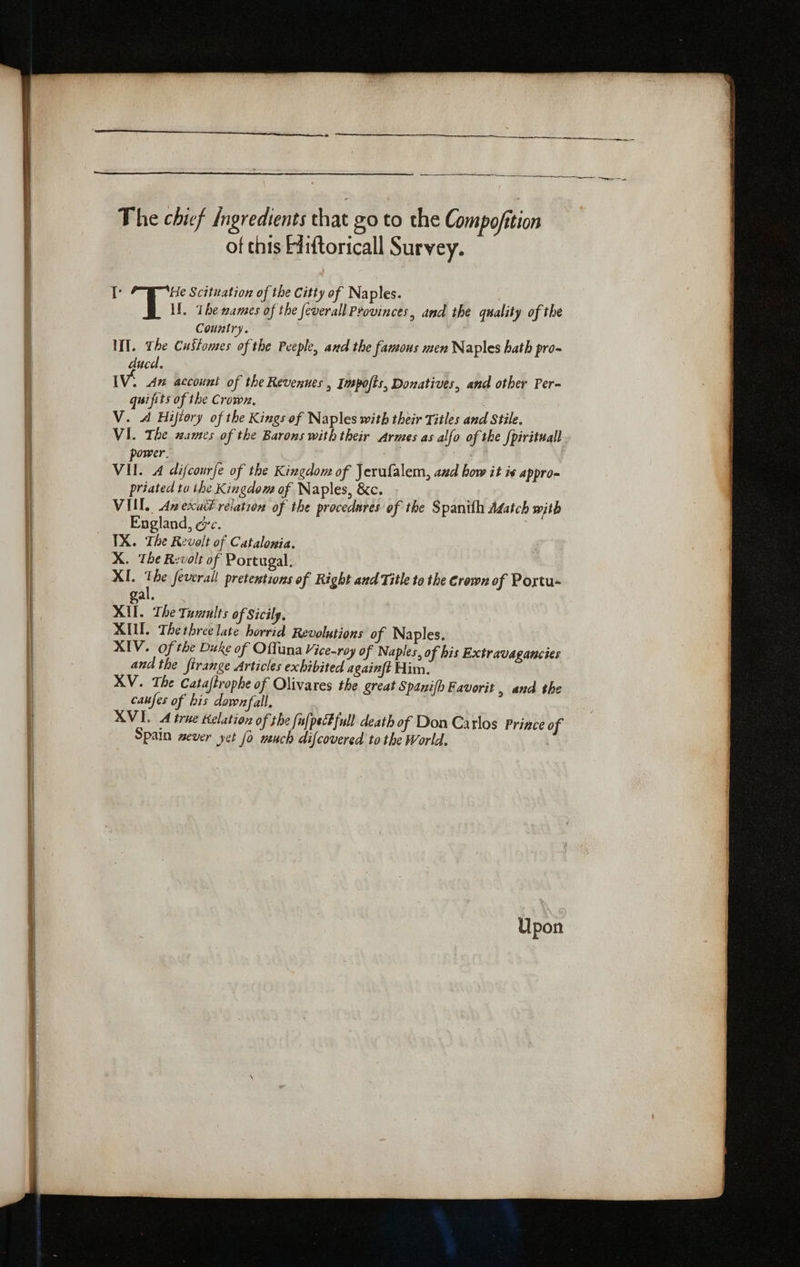 The chief Ingredients that go to the Compoſition
of this Hiſtoricall Survey.
I. THe Scituation of the Citty of Naples.
II. The names of the ſeverall Provinces, and the quality of the
Country.
III. The Customes of the People, and the famous men Naples hath pro-
duced.
IV. An account of the Revenues, Impoſts, Donatives, and other Per-
quiſits of the Crown.
V. A Hiſtory of the Kings of Naples with their Titles and Stile.
VI. The names of the Barons with their Armes as alſo of the ſpirituall
power.
VII. A diſcourſe of the Kingdom of Jeruſalem, and how it is appro-
priated to the Kingdom of Naples, &c.
VIII. An exact relation of the procedures of the Spaniſh Match with
England, &c.
IX. The Revolt of Catalonia.
X. The Revolt of Portugal.
XI. The ſeverall pretentions of Right and Title to the Crown of Portu-
gal.
XII. The Tumults of Sicily.
XIII. The three late horrid Revolutions of Naples.
XIV. Of the Duke of Oſſuna Vice-roy of Naples, of his Extravagancies
and the ſtrange Articles exhibited againſt Him.
XV. The Cataſtrophe of Olivares the great Spaniſh Favorit, and the
cauſes of his downfall.
XVI. A true Relation of the ſuſpectfull death of Don Carlos Prince of
Spain never yet ſo much diſcovered to the World.
Upon